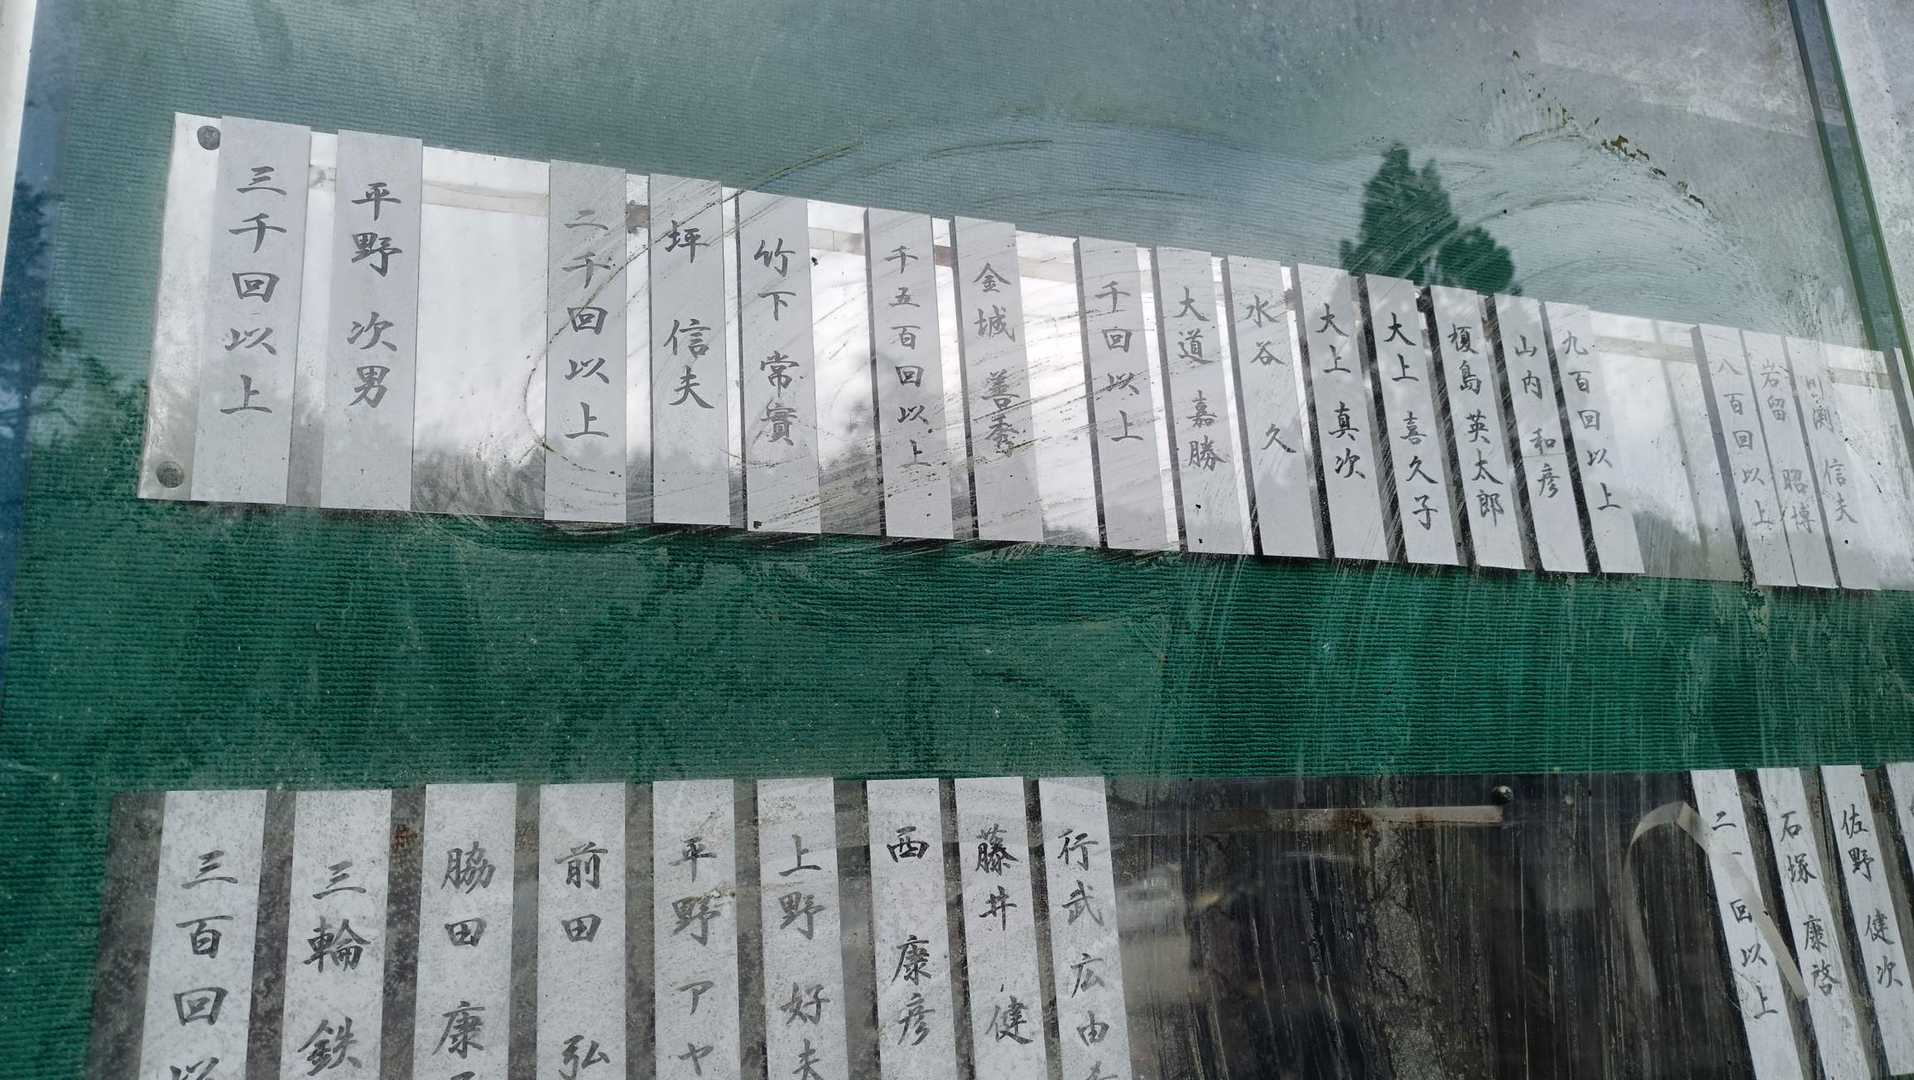 三千回以上
平野 次男
二千回以上
坪 信夫
竹下 常實
千五百回以上
金城 善秀
千回以上
大道 嘉勝
水谷 久
大上 真次
大上 喜久子
榎島 英太郎
山内 和彦
九百回以上
八百回以上
岩留 昭博
信夫
三百回以
三輪 鉄
脇田 康
前田 弘
平野アヤ
上野 好夫
西 康彦
藤井 健
行武 広由
回以上
石塚 康啓
佐野 健次